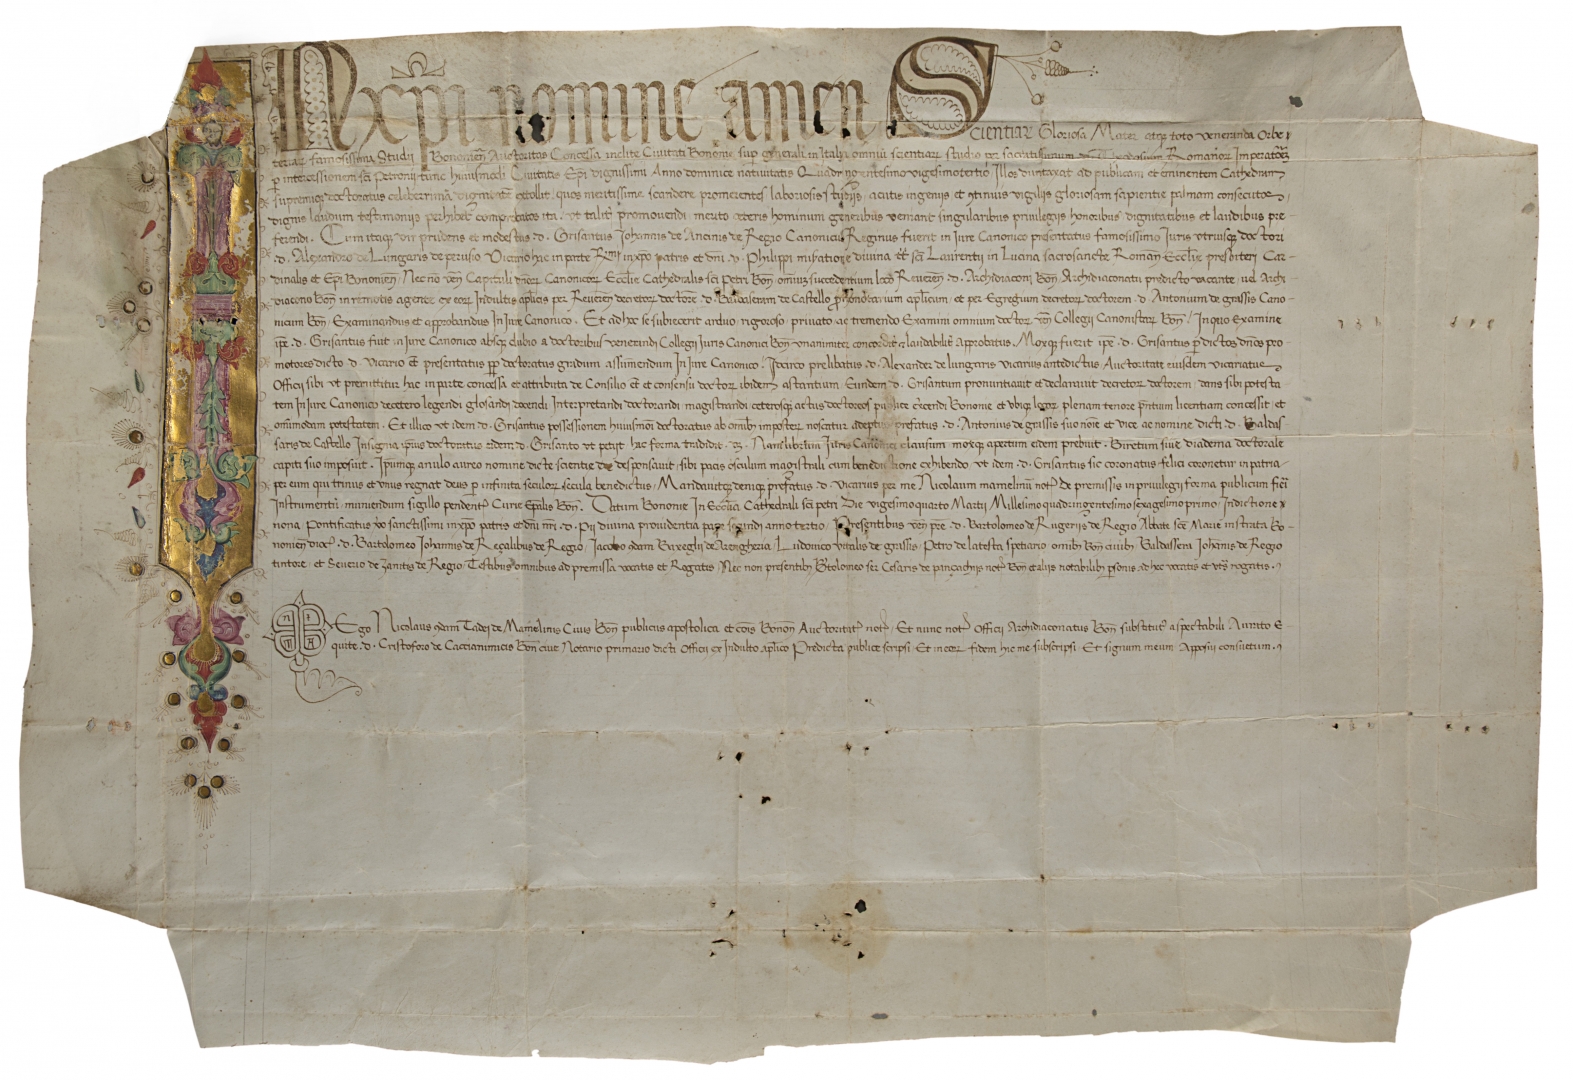 In xpi nomine amen Scientiar Gloriosa Mater atq toto veneranda Orbe
terrar famosissima Studii Bononien Auctoritas Concessa inclite Civitati Bononie sup generali in Italia omniu scientiar studio Romanor Imperator
p intercessionem sci Petronii tunc huiusmodi Civitatis Epi dignissimi Anno dominice nativitatis Quadringentesimo vigesimotertio Illos duntaxat ad publicam et eminentem Cathedram
supremior doctoratus celeberrima extollit quos meritissime scandere promerentes laboriosis studijs acutis ingenijs et otinuis vigilijs gloriosam sapientie palmam consecutos
dignis laudum testimonijs perhibet comprobatos ita ut talit promovendi merito ceteris hominum generibus veniant singularibus privilegijs honoribus dignitatibus et laudibus pre-
ferendi. Cum itaque vir prudens et modestus .d. Grisantus Johannis de Ancinis de Regio Canonicus Reginus fuerit in Iure Canonico presentatus famosissimo Iuris utriusq doctori
.d. Alexandro de Lungaris de perusio Vicario hac in parte in xpo patris et dni .d. Philippi miseratione divina tt sci Laurentij in Lucina sacrosancte Roman Ecclie presbiteri Car-
dinalis et Epi Bononien Necno ven Capituli dnor Canonicor Ecclie Cathedralis sci Petri Bon omniu succedentium loco Reveren .d. Archidiaconi Bon Archidiaconatu predicto vacante vel Archi
diacono Bon in remotis agente ex eor Indultis aplicis per Reveren decretor doctore .d. Baldaserem de Castello prothonotarium aplicum et per Egregium decretor doctorem .d. Antonium de grassis Cano-
nicum Bon Examinandus et approbandus In Iure Canonico. Et ad hoc se subiecerit arduo rigoroso privato ac tremendo Examini omnium doctor ven Collegij Canonistar Bon. In quo Examine
ipe .d. Grisantus fuit in Iure Canonico absq dubio a doctoribus venerandi Collegij Iuris Canonici Bon unanimiter concordit et laudabilit approbatus. Moxq fuerit ipe .d. Grisantus p dictos dnos pro-
motores dicto .d. Vicario presentatus pp doctoratus gradum assumendum In Iure Canonico. Idcirco prelibatus .d. Alexander de lungaris vicarius antedictus Auctoritate eiusdem vicariatus
Officij sibi ut premittitur hac in parte concessa et attributa de Consilio et consensu doctor ibidem astantium Eundem .d. Grisantum pronuntiavit et declaravit decretor doctorem dans sibi potesta-
tem In Iure Canonico decetero legendi glosandi docendi Interpretandi doctorandi magistrandi ceterosq actus doctoreos publice exercendi Bononie et ubiq locor plenam tenore pntium licentiam concessit et
omimodam potestatem. Et illico ut idem .d. Grisantus possessionem huiusmodi doctoratus ab omib imposter noscatur adeptus prefatus .d. Antonius de grassis suo noie et vice ac nomine dicti .d. Baldas
saris de Castello Insignia ipsius doctoratus eidem .d. Grisanto ut petijt hac forma tradidit. Nam librum Iuris Canonici clausum moxq apertum eidem prebuit. Biretum sive diadema doctorale
capiti suo imposuit. Ipsumq anulo aureo nomine dicte scientie desponsavit sibi pacis osculum magistrali cum benedictione exhibendo ut idem .d. Grisantus sic coronatus felici coronetur in patria
per eum qui trinus et unus regnat deus p infinita seculor secula benedictus. Mandavitq deniq prefatus .d. Vicarius per me Nicolaum mamelinu not de premissis in privilegij forma publicum fieri
Instrumentu muniendum sigillo pendenti Curie Epalis Bon. Datum Bononie In Ecclia Cathedrali sci petri Die vigesimoquarto Martij Millesimo quadringentesimo sexagesimo primo Indictione
nona Pontificatus vo sanctissimi in xpo patris et dni nri .d. Pij divina providentia pape secundi anno tertio. Presentibus ven pre .d. Bartolomeo de Rugerijs de Regio Abbate sce Marie in strata Bo-
nonien dioc .d. Bartolomeo Johannis de Reçalibus de Regio Jacobo Ludovico vitalis de grassis Petro de latesta spetiario omib Bon civib Baldassera Johanis de Regio
tintore et Severio de zanitis de Regio Testibus omnibus ad premissa vocatis et Rogatis. Nec non presentib Btolomeo ser Cesaris de pançachijs not Bon et alijs notabilib psonis ad hec vocatis et rogatis.
Ego Nicolaus qdam Tadei de Mamelinis Civis Bon publicus apostolica et cois Bonon Auctoritat not Et nunc not Officij Archidiaconatus Bon substitut a spectabili Aurato E-
quite .d. Cristoforo de Caccianimicis Bon cive Notario primario dicti Officij ex Indulto aplico Predicta publice scripsi Et in eor fidem hic me subscripsi Et signum meum Apposui consuetum.